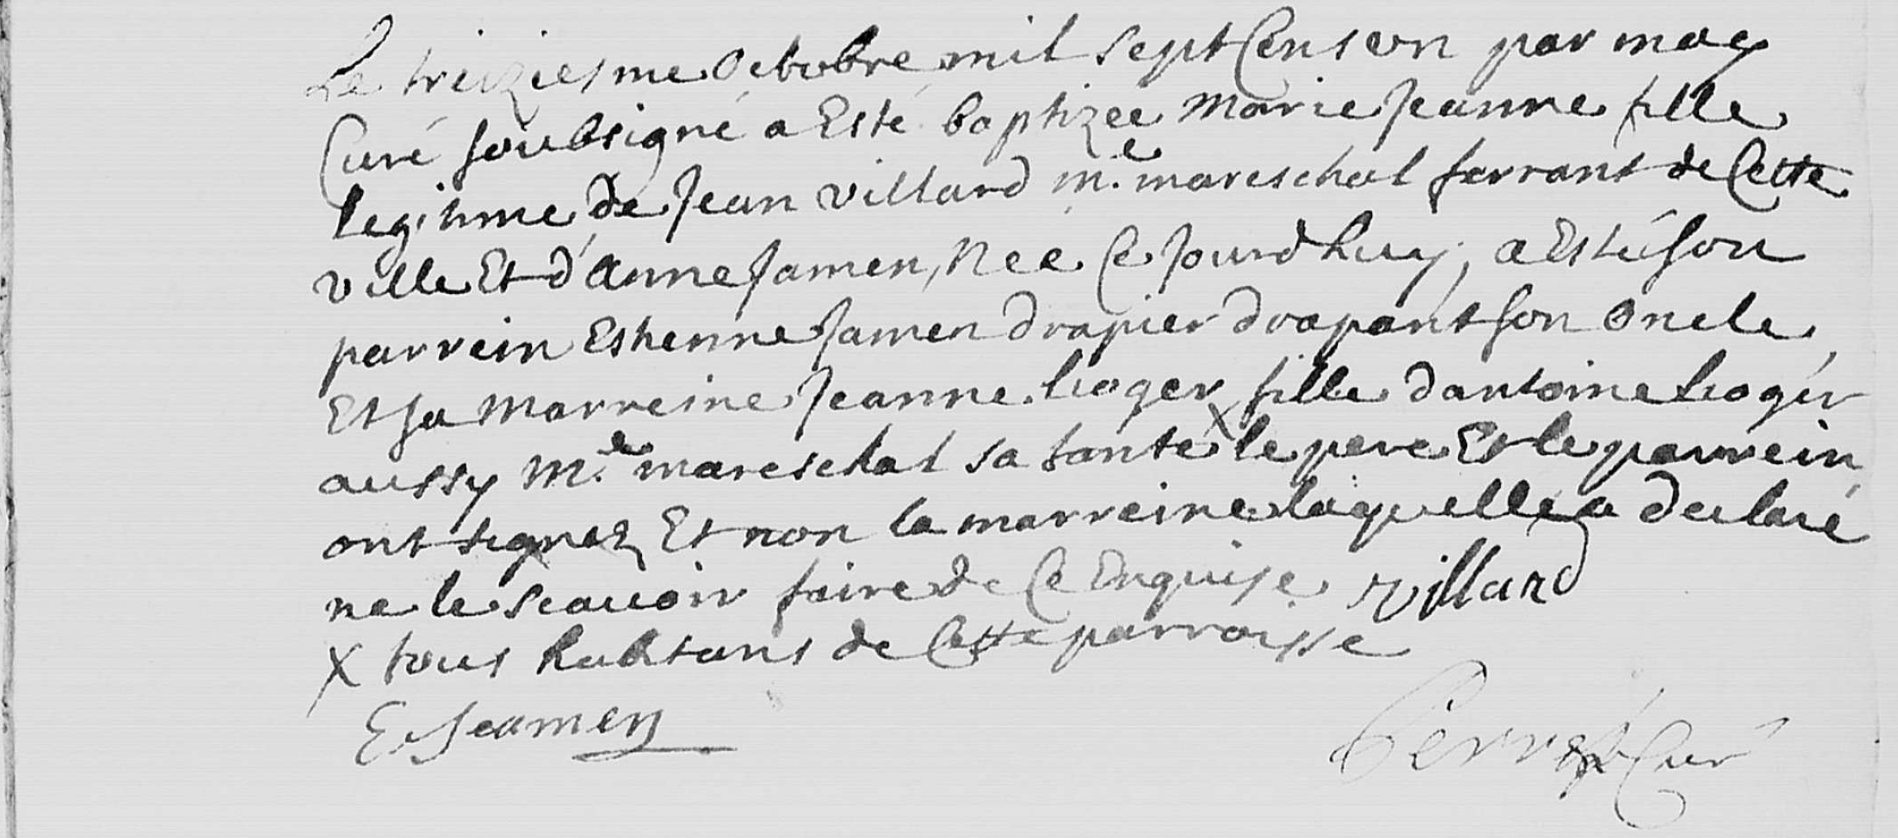 Le treiziesme Octobre mil sept Cens un par moy
Curé soubsigné a Esté baptizée Marie Jeanne fille
legitime de Jean Villard m.e mareschal ferrant de Cette
ville Et d'Anne Jamen, Née Ce Jourd'huy, a Esté son
parrein Estienne Jamen drapier drapant son Oncle
Et sa Marreine Jeanne Lioger fille d'antoine Lioger
aussy M.e mareschal sa tante x le pere Et le parrein
ont signez Et non la marreine laquelle a declaré
ne le scavoir faire de Ce Enquise Villard
x tous habitans de Cette parroisse
E. Jeamen
Perret Curé